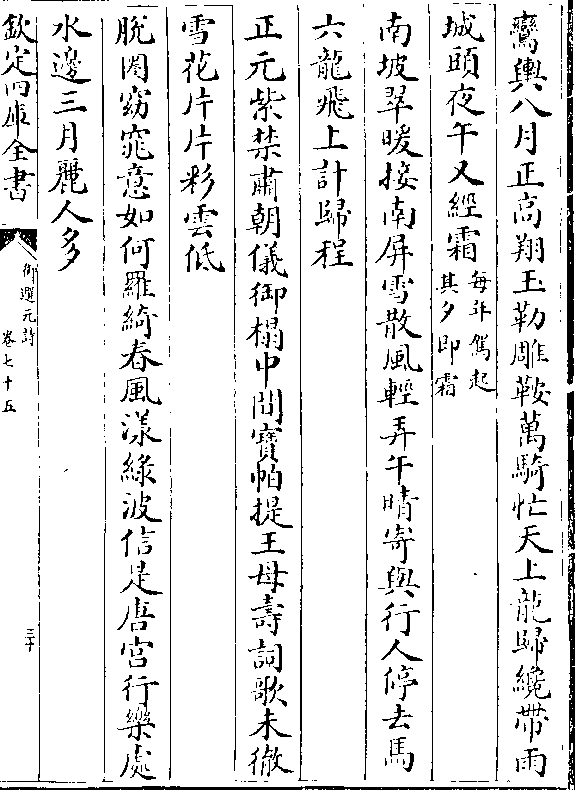 鸞輿八月正高翔玉勒雕鞍萬騎忙天上龍歸纔帶雨
城頭夜午又經霜每年駕起其夕即霜
南坡翠暖接南屏雪散風輕弄午晴寄與行人停去馬
六龍飛上計歸程
正元紫禁肅朝儀御榻中間寶帕提王母壽詞歌未徹
雪花片片彩雲低
脫圈窈窕意如何羅綺春風漾綠波信是唐宮行樂處
水邊三月麗人多
欽定四庫全書
御選元詩
卷七十五
三十